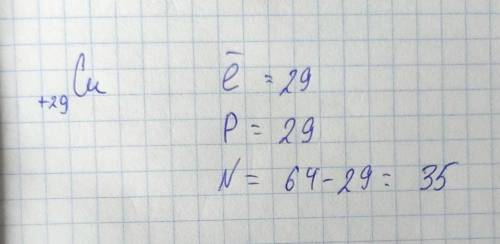 +29Cu
ē = 29
P = 29
N = 64-29= 35